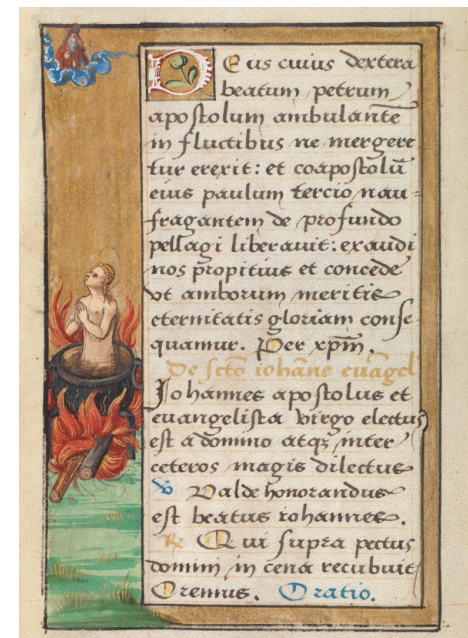 Deus cuius dextera
beatum petrum
apostolum ambulantē
in fluctibus ne mergere
tur erexit: et coapostolū
eius paulum tercio nau-
fragantem de profundo
pellagi liberauit: exaudi
nos propitius et concede
vt amborum meritis
eternitatis gloriam conse
quamur. Per xpm̄.
De scto iohāne euāgel
Johannes apostolus et
euangelista virgo electus
est a domino atqꝫ inter
ceteros magis dilectus
v Valde honorandus
est beatus iohannes.
℞ Qui supra pectus
domini in cena recubuit
Oremus. Oratio.